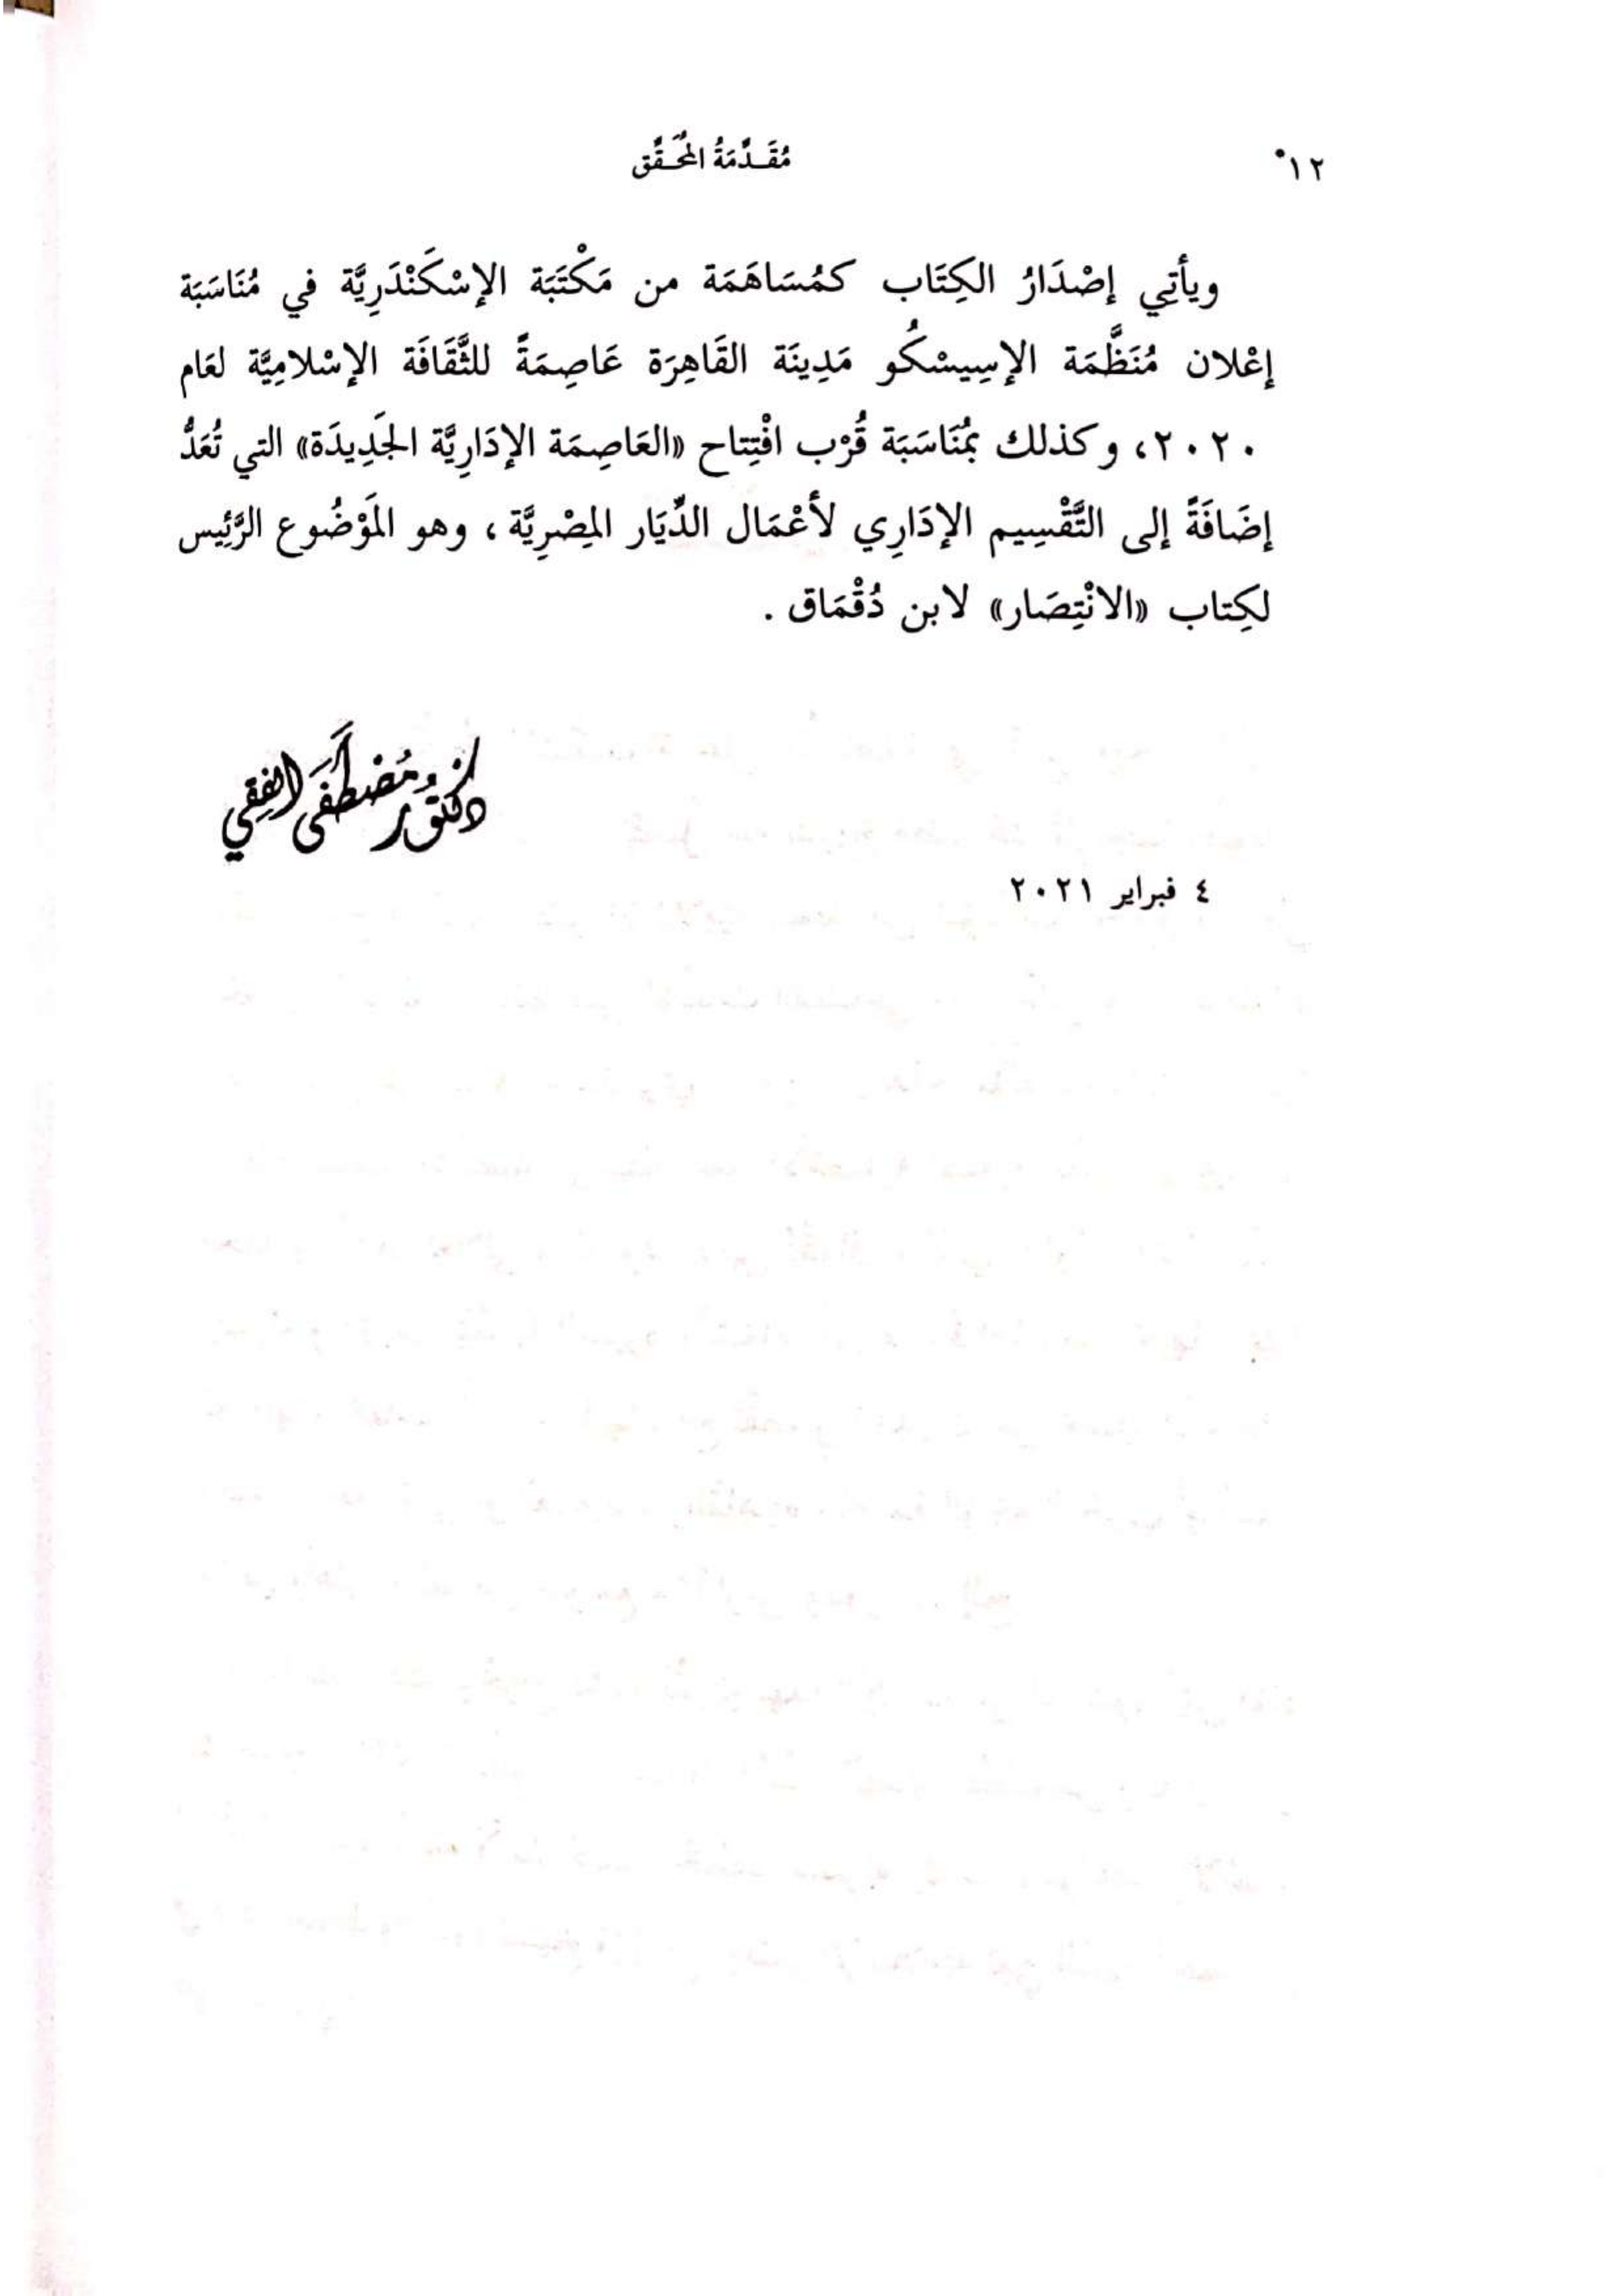 ١٢* مُقَدِّمَةُ المُحَقِّق
ويأتِي إصْدَارُ الكِتَاب كمُسَاهَمَة من مَكْتَبَة الإسْكَنْدَرِيَّة في مُنَاسَبَة
إعْلان مُنَظَّمَة الإسِيسْكُو مَدِينَة القَاهِرَة عَاصِمَةً للثَّقَافَة الإسْلامِيَّة لعَام
٢٠٢٠، وكذلك بمُنَاسَبَة قُرْب افْتِتاح «العَاصِمَة الإدَارِيَّة الجَدِيدَة» التي تُعَدُّ
إضَافَةً إلى التَّقْسِيم الإدَارِي لأعْمَال الدِّيَار المِصْرِيَّة، وهو المَوْضُوع الرَّئِيس
لكِتاب «الانْتِصَار» لابن دُقْمَاق.
دكتور مُصْطَفَى الفِقِي
٤ فبراير ٢٠٢١